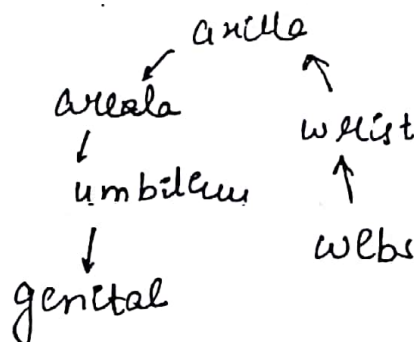 axilla
areola
wrist
umbilicus
webs
genital